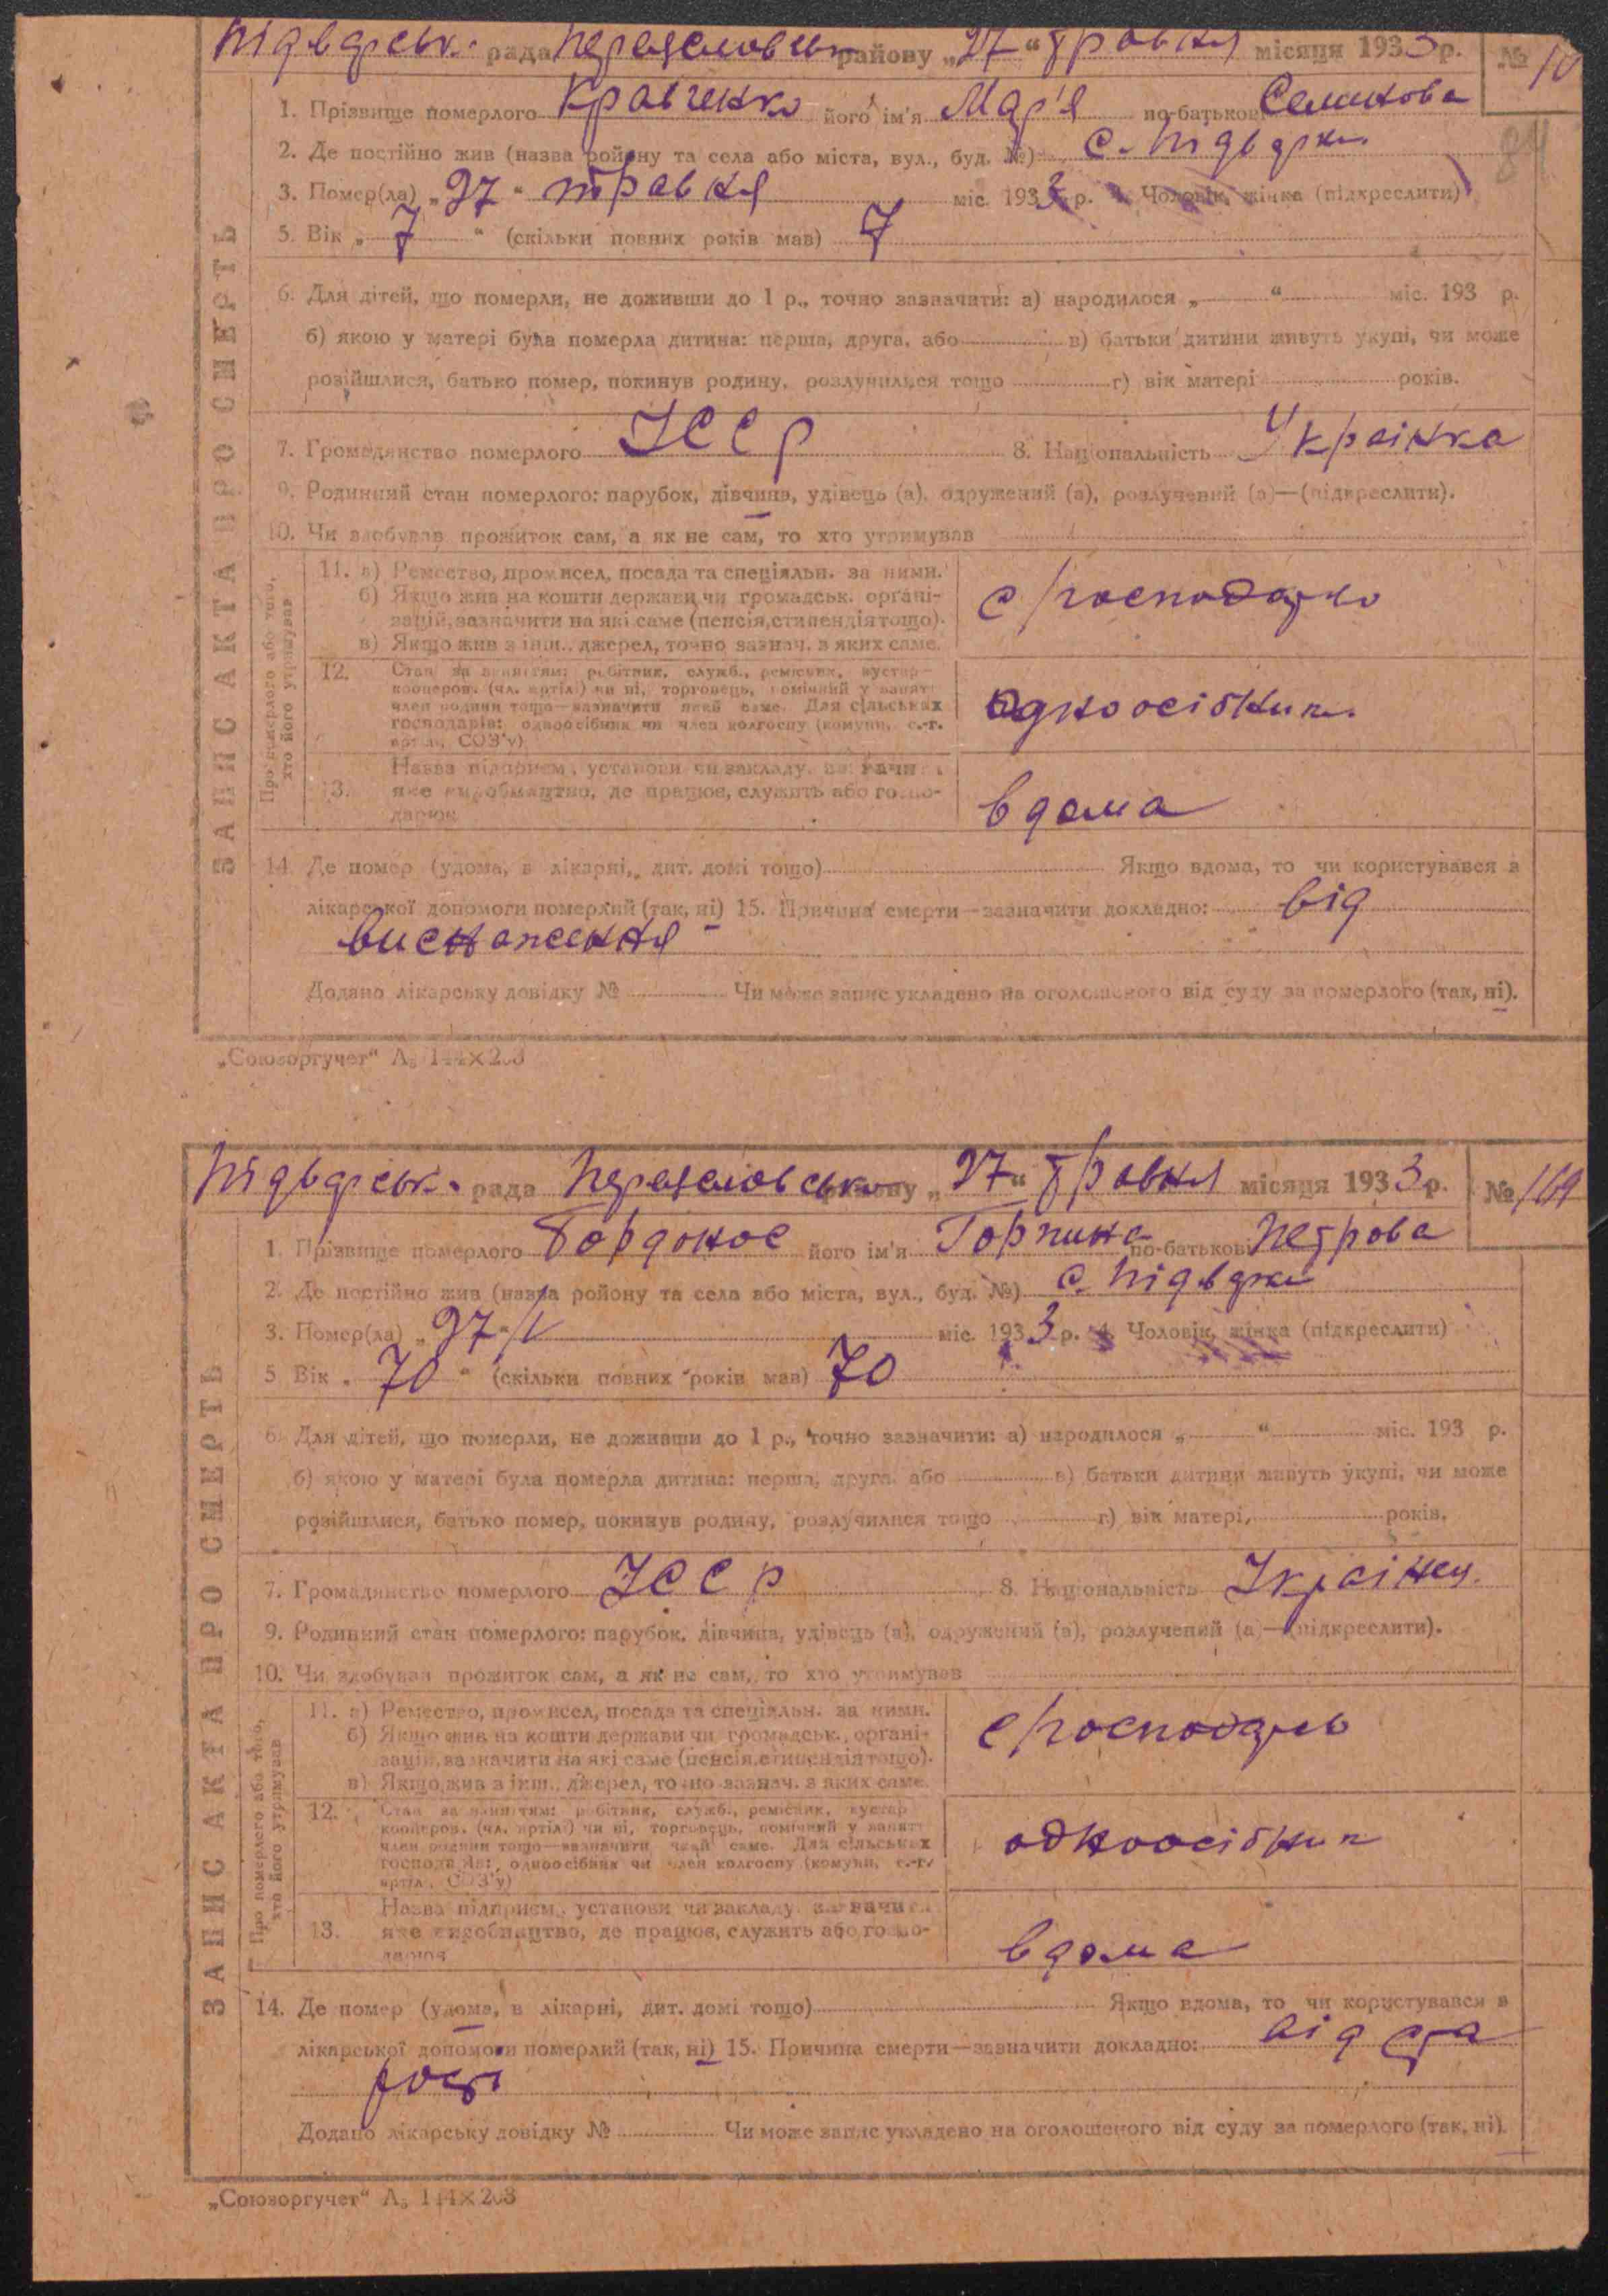 Підварськ. рада Переяславськ району „27“ травня місяця 1933 р. №
84
ЗАПИС АКТА ПРО СМЕРТЬ
1. Прізвище померлого Кравченко його ім'я Мар'я по-батькові Семенова
2. Де постійно жив (назва району та села або міста, вул., буд. №) с. Підварки
3. Помер(ла) „27“ травня міс. 1933 р. 4. Чоловік, жінка (підкреслити)
5. Вік „7“ (скільки повних років мав) 7
6. Для дітей, що померли, не доживши до 1 р., точно зазначити: а) народилося „ “ міс. 193 р.
б) якою у матері була померла дитина: перша, друга, або в) батьки дитини живуть укупі, чи може
розійшлися, батько помер, покинув родину, розлучилися тощо г) вік матері років.
7. Громадянство померлого УССР 8. Національність Українка
9. Родинний стан померлого: парубок, дівчина, удівець (а), одружений (а), розлучений (а)—(підкреслити).
10. Чи здобував прожиток сам, а як не сам, то хто утримував
Про померлого або того, хто його утримував
11. а) Ремество, промисел, посада та спеціяльн. за ними.
б) Якщо жив на кошти держави чи громадськ. органі-
зацій, зазначити на які саме (пенсія, стипендія тощо).
в) Якщо жив з інш. джерел, точно зазнач. з яких саме.
с/господарь
12. Стан за заняттям: робітник, служб., ремісник, кустар-
кооперов. (чл. артілі) чи ні, торговець, помічний у занятт.
член родини тощо—зазначити який саме. Для сільських
господарів: одноосібник чи член колгоспу (комуни, с.-г.
артіл., СОЗ'у)
одноосібник
13. Назва підприєм., установи чи закладу, зазначити
яке виробництво, де працює, служить або госпо-
дарює
вдома
14. Де помер (удома, в лікарні, дит. домі тощо) Якщо вдома, то чи користувався з
лікарської допомоги померлий (так, ні) 15. Причина смерти—зазначити докладно: від
виснаження
Додано лікарську довідку № Чи може запис укладено на оголошеного від суду за померлого (так, ні).
„Союзоргучет“ А₅ 144×203
Підварськ. рада Переяславськ району „27“ травня місяця 1933 р. № 169
ЗАПИС АКТА ПРО СМЕРТЬ
1. Прізвище померлого Бордонос його ім'я Горпина по-батькові Петрова
2. Де постійно жив (назва району та села або міста, вул., буд. №) с. Підварки
3. Помер(ла) „27“/V міс. 1933 р. 4. Чоловік, жінка (підкреслити)
5. Вік „70“ (скільки повних років мав) 70
6. Для дітей, що померли, не доживши до 1 р., точно зазначити: а) народилося „ “ міс. 193 р.
б) якою у матері була померла дитина: перша, друга, або в) батьки дитини живуть укупі, чи може
розійшлися, батько помер, покинув родину, розлучилися тощо г) вік матері, років.
7. Громадянство померлого УССР 8. Національність Українец.
9. Родинний стан померлого: парубок, дівчина, удівець (а), одружений (а), розлучений (а)—(підкреслити).
10. Чи здобував прожиток сам, а як не сам, то хто утримував
Про померлого або того, хто його утримував
11. а) Ремество, промисел, посада та спеціяльн. за ними.
б) Якщо жив на кошти держави чи громадськ. органі-
зацій, зазначити на які саме (пенсія, стипендія тощо).
в) Якщо жив з інш. джерел, точно зазнач. з яких саме.
с/господарь
12. Стан за заняттям: робітник, служб., ремісник, кустар-
кооперов. (чл. артілі) чи ні, торговець, помічний у занятт.
член родини тощо—зазначити який саме. Для сільських
господарів: одноосібник чи член колгоспу (комуни, с.-г.
артіл., СОЗ'у)
одноосібник
13. Назва підприєм., установи чи закладу, зазначити
яке виробництво, де працює, служить або госпо-
дарює
вдома
14. Де помер (удома, в лікарні, дит. домі тощо) Якщо вдома, то чи користувався з
лікарської допомоги померлий (так, ні) 15. Причина смерти—зазначити докладно: від ста
рости
Додано лікарську довідку № Чи може запис укладено на оголошеного від суду за померлого (так, ні).
„Союзоргучет“ А₅ 144×203